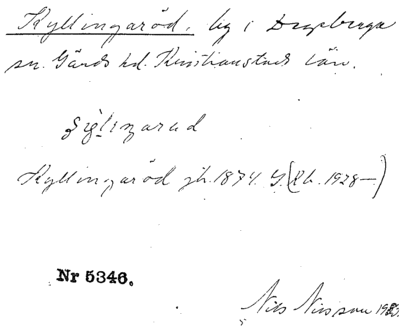 Kyllingaröd, by i Degeberga
sn. Gärds hd. Kristianstads län.
Kyllingaröd jb. 1874. G. (Rb. 1928—)
Nr 5346.
Nils Nilsson